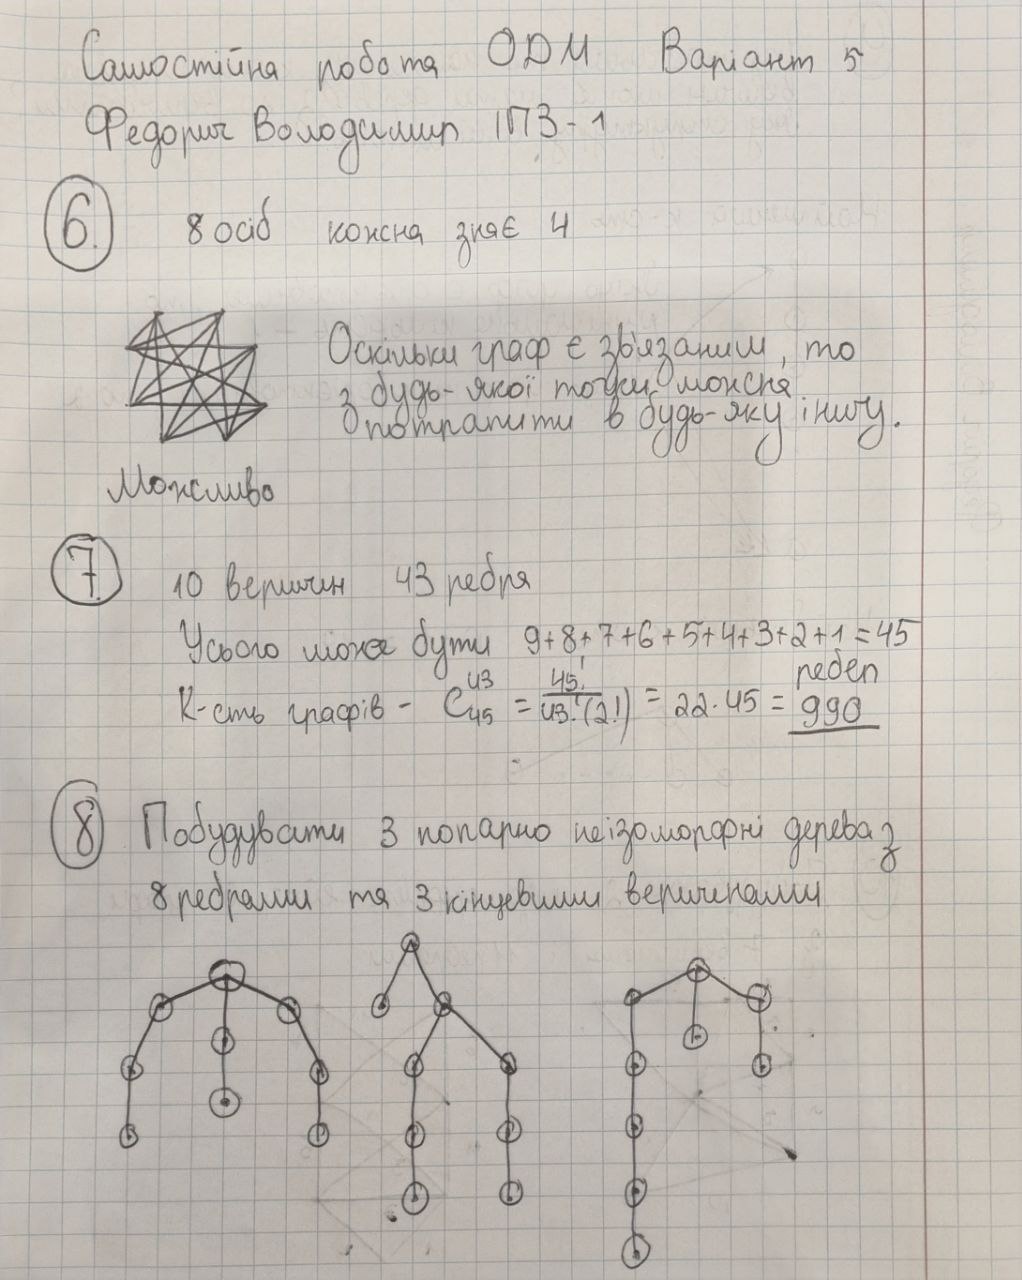 Самостійна робота ОДМ Варіант 5
Федорич Володимир ІПЗ-1
6. 8 осіб кожна знає 4
Оскільки граф є зв'язаним, то
з будь-якої точки можна
потрапити в будь-яку іншу.
Можливо
7. 10 вершин 43 ребра
Усього може бути 9+8+7+6+5+4+3+2+1=45
ребер
К-сть графів - C₄₅⁴³ = 45!/43!(2!) = 22·45 = 990
8 Побудувати 3 попарно неізоморфні дерева з
8 ребрами та 3 кінцевими вершинами